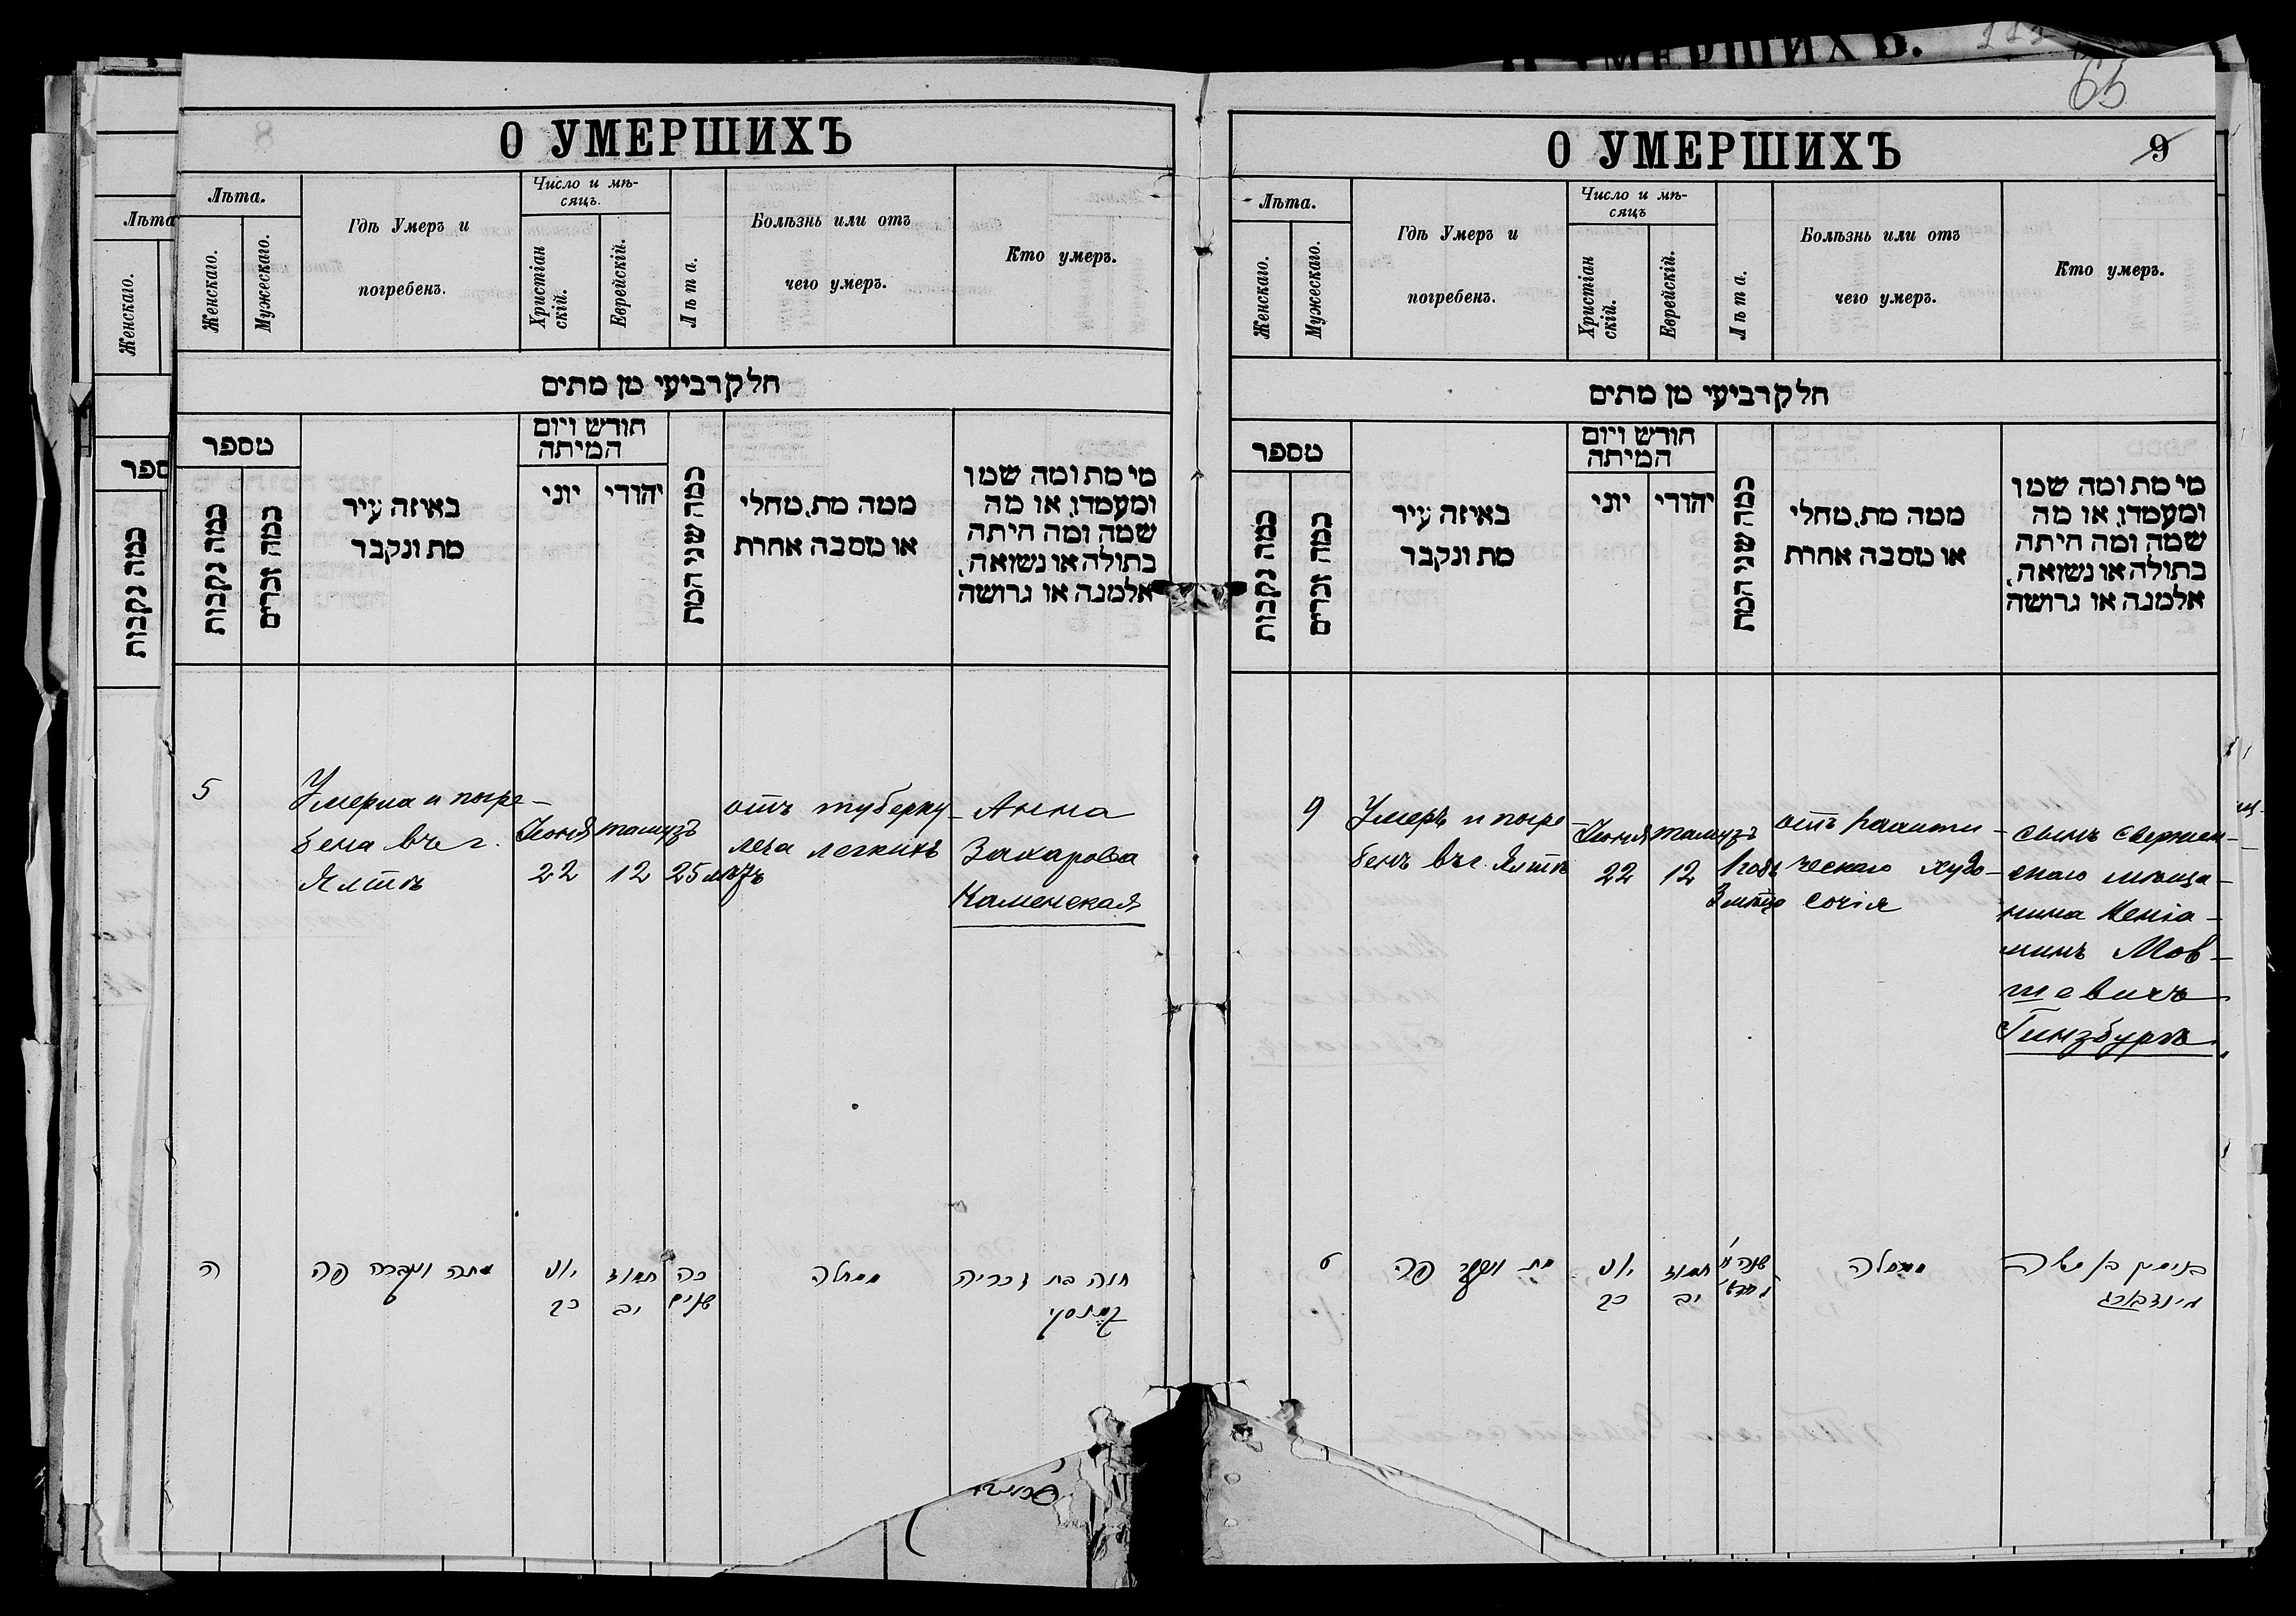 65
О УМЕРШИХЪ
Лѣта.
Женскаго.
Мужескаго.
Гдѣ Умеръ и
погребенъ.
Число и мѣ-
сяцъ.
Христіан
скій.
Еврейскій.
Лѣта.
Болѣзнь или отъ
чего умеръ.
Кто умеръ.
חלק רביעי מן מתים
מספר
כמה נקבות
כמה זכרים
באיזה עיר
מת ונקבר
חודש ויום
המיתה
יוני
יהודי
כמה שני המת
ממה מת, מחלי
או מסבה אחרת
מי מת ומה שמו
ומעמדו, או מה
שמה ומה היתה
בתולה או נשואה,
אלמנה או גרושה
5
Умерла и погре-
бена въ г.
Ялтѣ
Іюня
22
тамузъ
12
25 лѣтъ
отъ туберку-
леза легкихъ
Анна
Захарова
Каменская
ה
מתה ונקברה פה
יוני
כב
תמוז
יב
כה
שנים
ממחלה
חוה בת זכריה
קמנסקי
О УМЕРШИХЪ
9
Лѣта.
Женскаго.
Мужескаго.
Гдѣ Умеръ и
погребенъ.
Число и мѣ-
сяцъ
Христіан
скій.
Еврейскій.
Лѣта.
Болѣзнь или отъ
чего умеръ.
Кто умеръ.
חלק רביעי מן מתים
מספר
כמה נקבות
כמה זכרים
באיזה עיר
מת ונקבר
חודש ויום
המיתה
יוני
יהודי
כמה שני המת
ממה מת, מחלי
או מסבה אחרת
מי מת ומה שמו
ומעמדו, או מה
שמה ומה היתה
בתולה או נשואה,
אלמנה או גרושה
9
Умеръ и погре-
бенъ въ г. Ялтѣ
Іюня
22
тамузъ
12
1 годъ
отъ рахити-
ческаго худо-
сочія
сынъ
скаго мѣща-
нина Веніа-
минъ Мов-
шевичъ
Гинзбургъ.
ט
מת ונקבר פה
יוני
כב
תמוז
יב
ממחלה
בנימין בן משה
גינזבורג